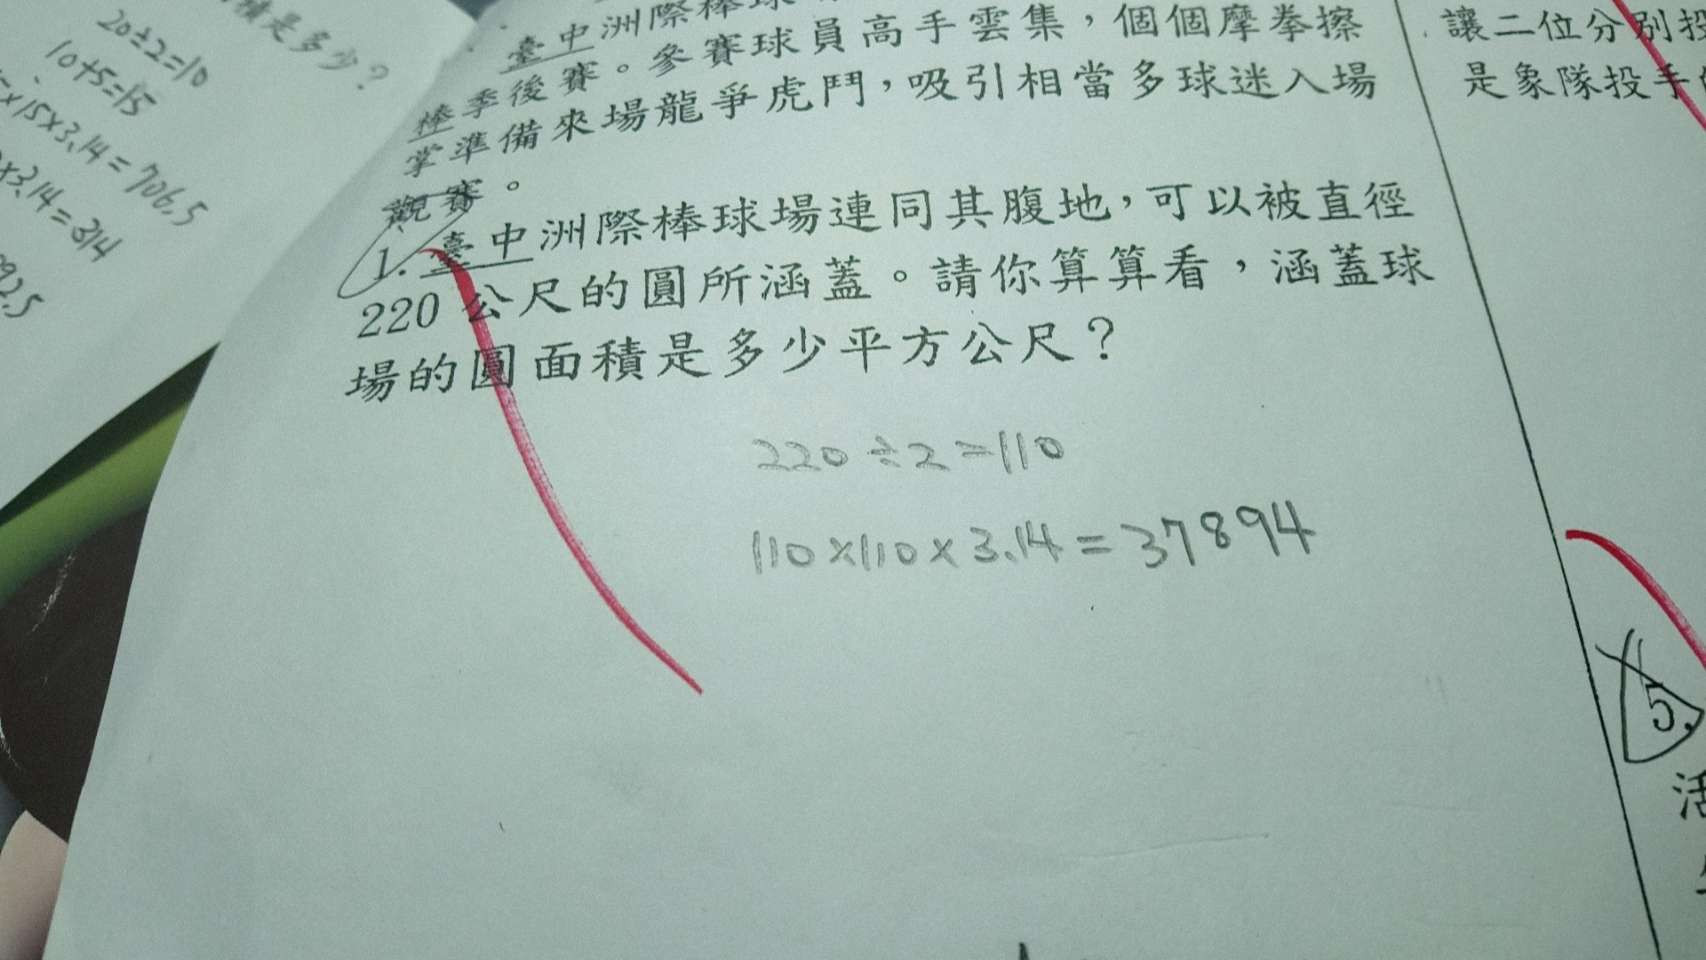 積是多少？
20÷2=10
10+5=15
×15×3.14=706.5
×3.14=314
92.5
臺中洲際棒球
棒季後賽。參賽球員高手雲集，個個摩拳擦
掌準備來場龍爭虎鬥，吸引相當多球迷入場
觀賽。
1. 臺中洲際棒球場連同其腹地，可以被直徑
220 公尺的圓所涵蓋。請你算算看，涵蓋球
場的圓面積是多少平方公尺？
220÷2=110
110×110×3.14=37894
讓二位分別投
是象隊投手
5.
活